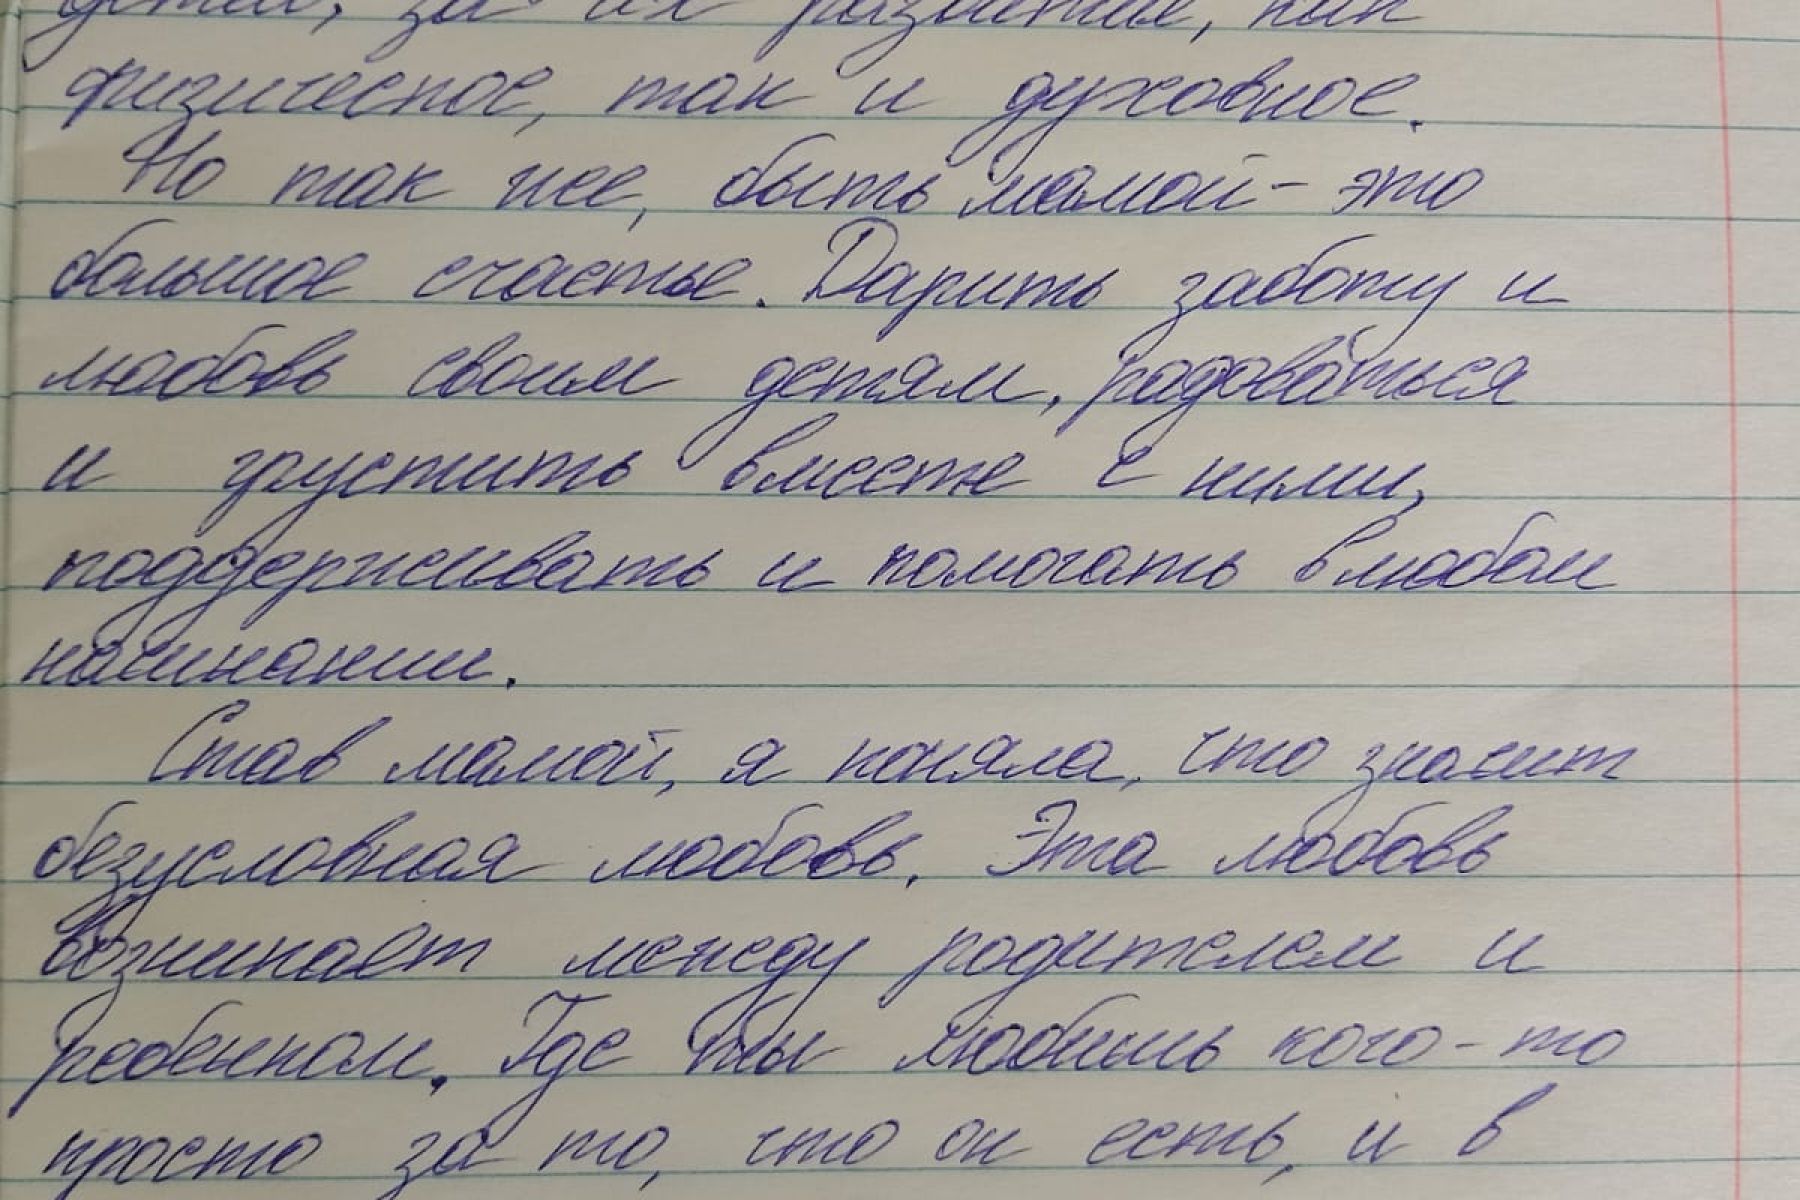 детей, за их развитие, как
физическое, так и духовное.
Но так же, быть мамой - это
большое счастье. Дарить заботу и
любовь своим детям, радоваться
и грустить вместе с ними,
поддерживать и помогать в любом
начинании.
Став мамой, я поняла, что значит
безусловная любовь. Эта любовь
возникает между родителем и
ребенком. Где ты любишь кого-то
просто за то, что он есть, и в